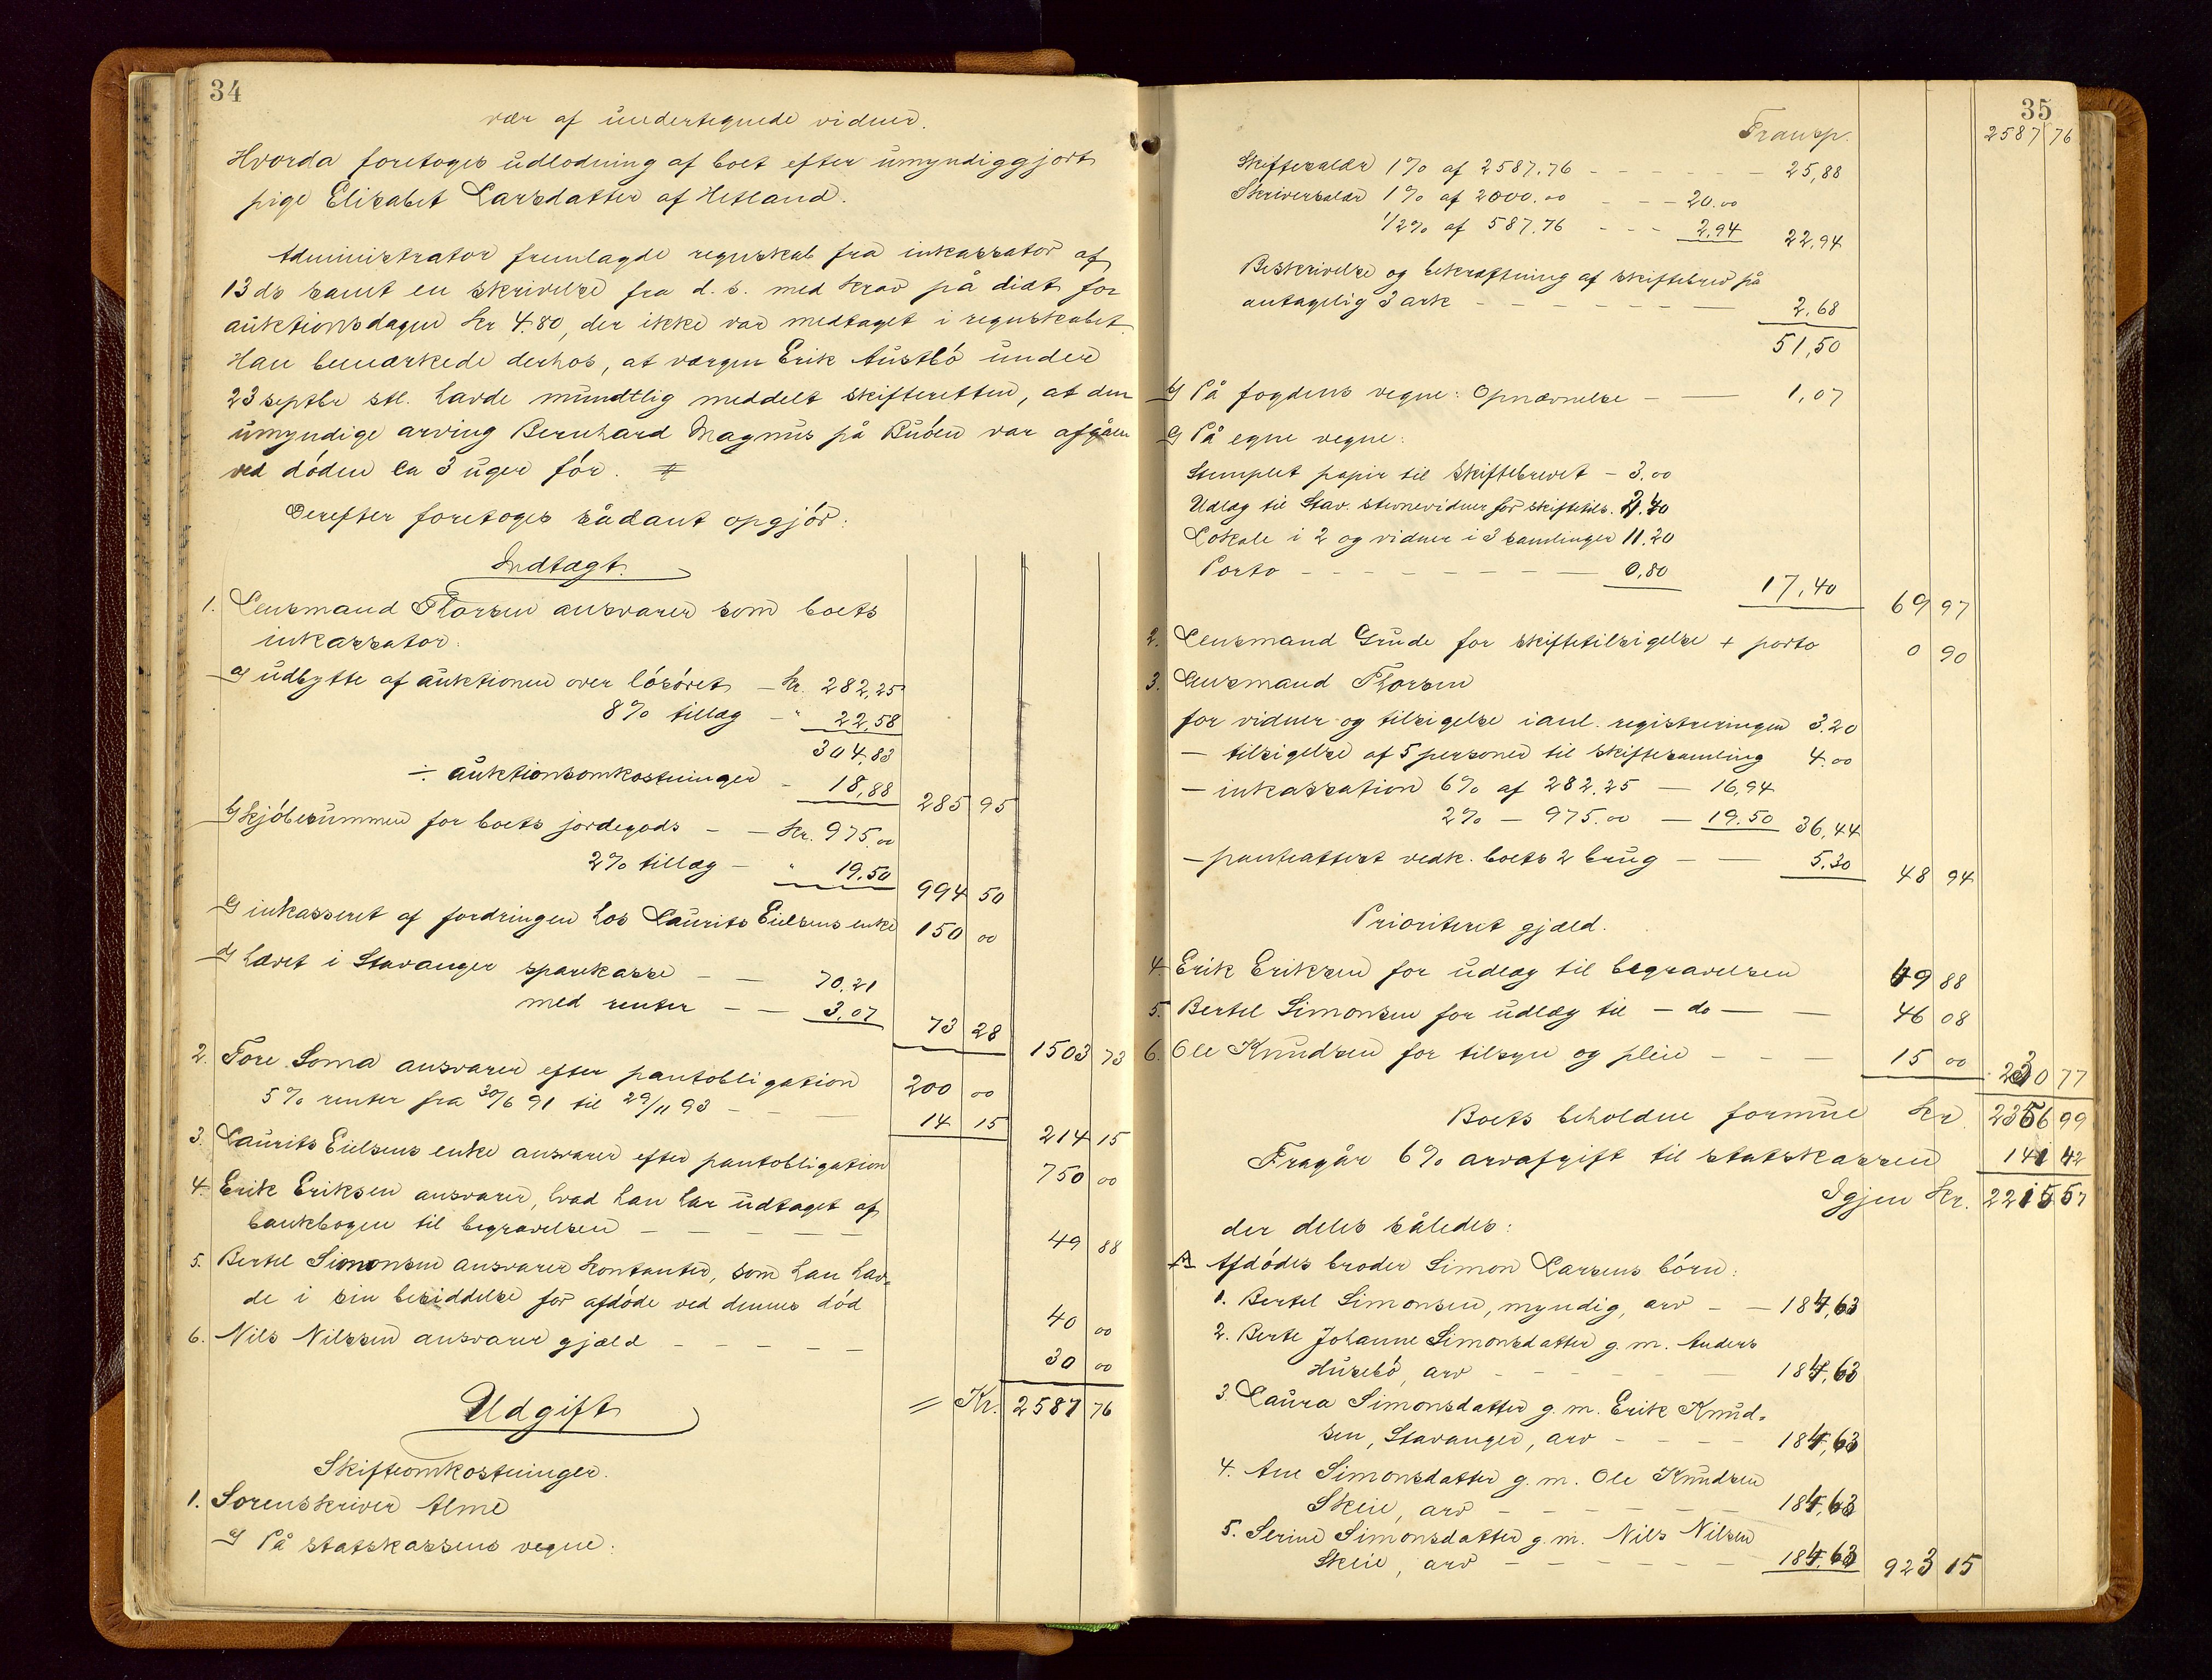 34
vær af undertegnede vidner.
Hvorda foretoges udlodning af boet efter umyndiggjort
pige Elisabet Larsdatter af Hetland.
Administrator fremlagde regnskab fra inkassator af
13 ds samt en skrivelse fra d. s. med krav på diæt for
auktionsdagen kr 4.80, der ikke var medtaget i regnskabet.
Han bemærkede derhos, at værgen Erik Austbö under
23 septbr stl. havde mundtlig meddelt skifteretten, at den
umyndige arving Bernhard Magnus på Buöen var afgåen
ved döden ca 3 uger för. #
Derefter foretoges sådant opgjör:
Indtægt.
1. Lensmand Thorsen ansvarer som boets
inkassator:
a) udbytte af auktionen over lösöret - kr. 282,25
8% tillæg - " 22,58
304,83
÷ auktionsomkostninger - 18,88 285 95
b) kjöbesummen for boets jordegods - - kr. 975.00
2% tillæg - " 19.50 994 50
c) inkasseret af fordringen hos Laurits Eielsens enke 150 00
d) hævet i Stavanger sparekasse - - 70,21
med renter - - 3,07 73 28 1503 73
2. Tore Soma ansvarer efter pantobligation 200 00
5% renter fra 30/6 91 til 29/11 93 - - 14 15 214 15
3. Laurits Eielsens enke ansvarer efter pantobligation 750 00
4. Erik Eriksen ansvarer, hvad han har udtaget af
bankbogen til begravelsen - - - - - 49 88
5. Bertel Simonsen ansvarer kontanter, som han hav-
de i sin besiddelse for afdöde ved dennes död 40 00
6. Nils Nilssen ansvarer gjæld - - - - - 30 00
= Kr. 2587 76
Udgift
Skifteomkostninger.
1. Sorenskriver Alme
a) På statskassens vegne:
35
Transp. 2587 76
Skiftesalær 1% af 2587.76 - - - - - - 25,88
Skriversalær 1% af 2000.00 - - - 20.00
1/2% af 587.76 - - - 2,94 22,94
Beskrivelse og bekræftning af skiftebrev på
antagelig 3 ark - - - - - - - 2,68
51,50
b) På fogdens vegne: Opnævnelse - - 1,07
c) På egne vegne:
Stemplet papir til skiftebrevet - 3.00
Udlæg til Stav. stevnevidner for skiftetils. 2.40
Lokale i 2 og vidner i 3 samlinger 11.20
Porto - - - - - - - - 0,80 17,40 69 97
2. Lensmand Grude for skiftetilsigelse + porto 0 90
3. Lensmand Thorsen
for vidner og tilsigelse i anl. registreringen 3.20
- tilsigelse af 5 personer til skiftesamling 4.00
- inkassation 6% af 282.25 - 16,94
2% - 975.00 - 19.50 36,44
- panteattest vedk. boets 2 brug - - 5.30 48 94
Prioriteret gjæld.
4. Erik Eriksen for udlæg til begravelsen 49 88
5. Bertel Simonsen for udlæg til - do - - 46 08
6. Ole Knudsen for tilsyn og pleie - - - 15 00 230 77
Boets beholdne formue kr. 2356 99
Fragår 6% arvafgift til statskassen 141 42
Igjen kr. 2215 57
der deles således:
A Afdödes broder Simon Larsens börn:
1. Bertel Simonsen, myndig, arv - - 184,63
2. Berte Johanne Simonsdatter g. m. Anders
Husebö, arv - - - - - - 184,63
3. Laura Simonsdatter g. m. Erik Knud-
sen, Stavanger, arv - - - - 184,63
4. Ane Simonsdatter g. m. Ole Knudsen
Skeie, arv - - - - - - 184,63
5. Serine Simonsdatter g. m. Nils Nilsen
Skeie, arv - - - - - - 184,63 923 15